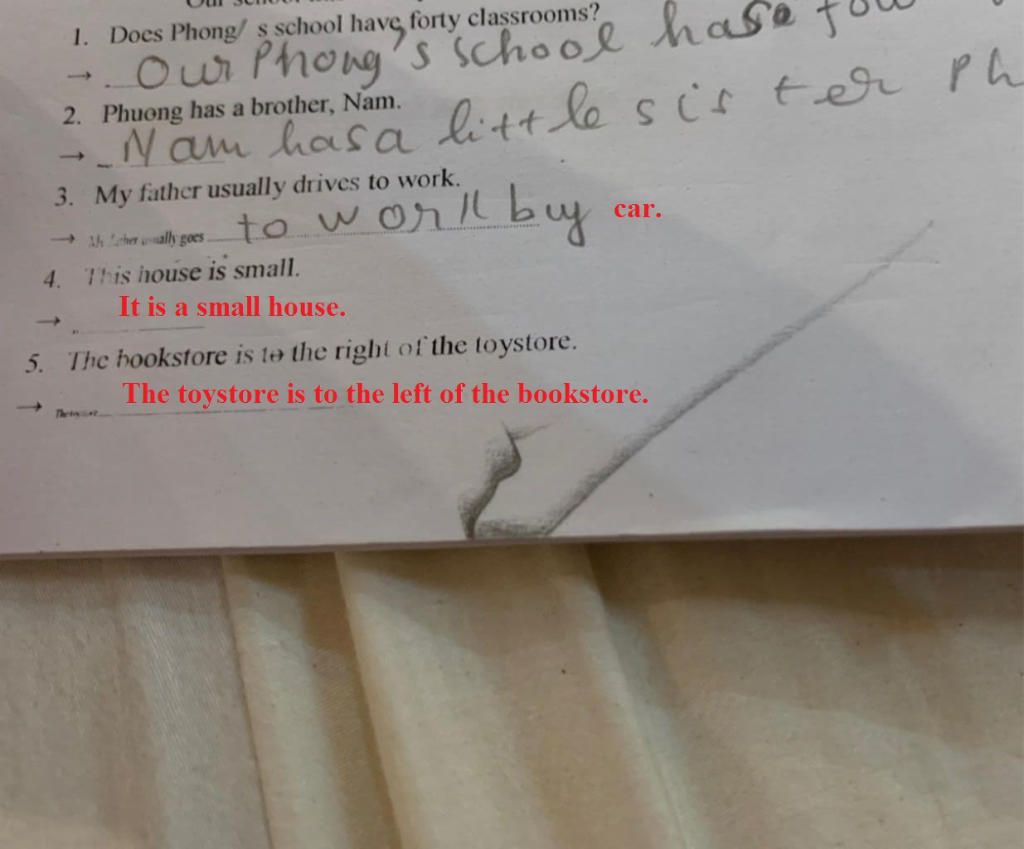 1. Does Phong/ s school have forty classrooms?
→ Our Phong's school hase fou
2. Phuong has a brother, Nam.
→ Nam has a little sister Ph
3. My father usually drives to work.
→ My father usually goes to work buy car.
4. This house is small.
It is a small house.
→
5. The bookstore is to the right of the toystore.
The toystore is to the left of the bookstore.
→ The toystore